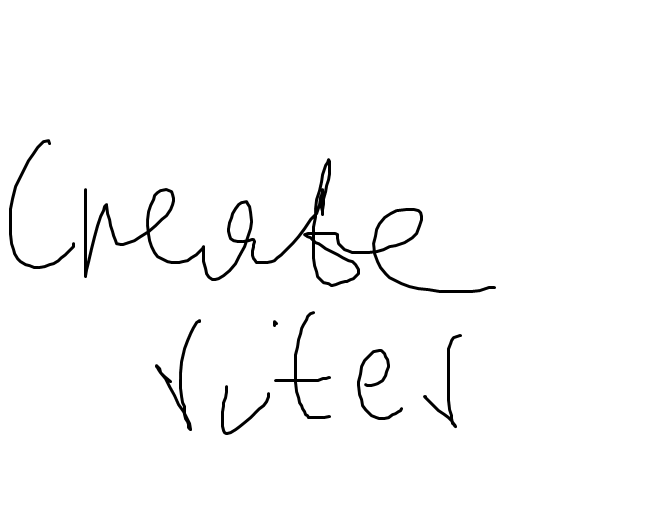 Create
rites